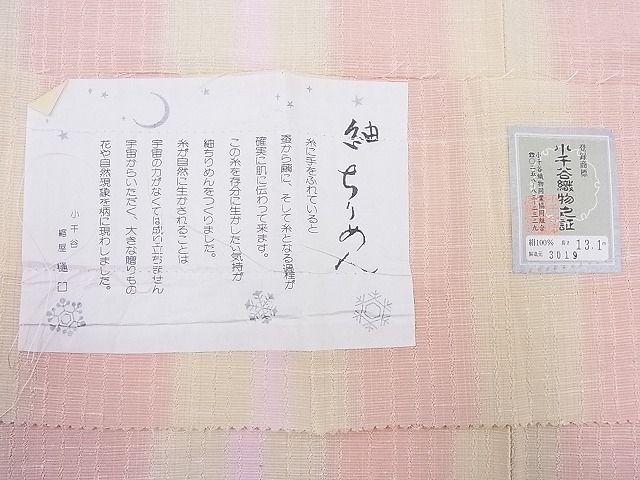 紬ちりめん
糸に手をふれていると
蚕から繭に、そして糸となる過程が
確実に肌に伝わって来ます。
この糸を存分に生かしたい気持が
紬ちりめんをつくりました。
糸が自然に生かされることは
宇宙の力がなくては成り立ちません
宇宙からいただく、大きな贈りもの
花や自然現象を柄に現わしました。
小千谷
樋口
登録商標
小千谷織物之証
小千谷織物同業協同組合
絹100% 長さ 13.1m
製造元 3019